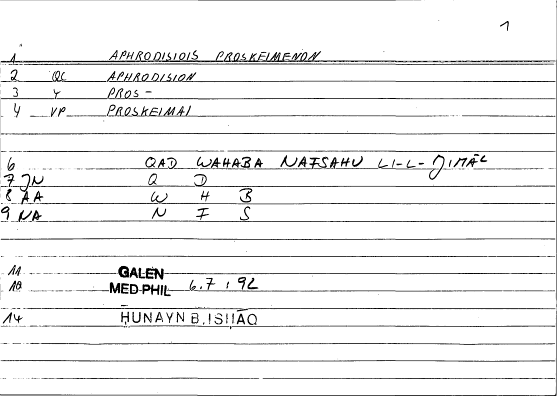 1
1 APHRODISIOIS PROSKEIMENON
2 QC APHRODISION
3 Y PROS-
4 VP PROSKEIMAI
6 QAD WAHABA NAFSAHU LI-L-JIMĀL
7 JN Q D
8 AA W H B
9 NA N F S
11 GALEN
MED PHIL 6.7 : 92
14 ḤUNAYN B. ISḤĀQ